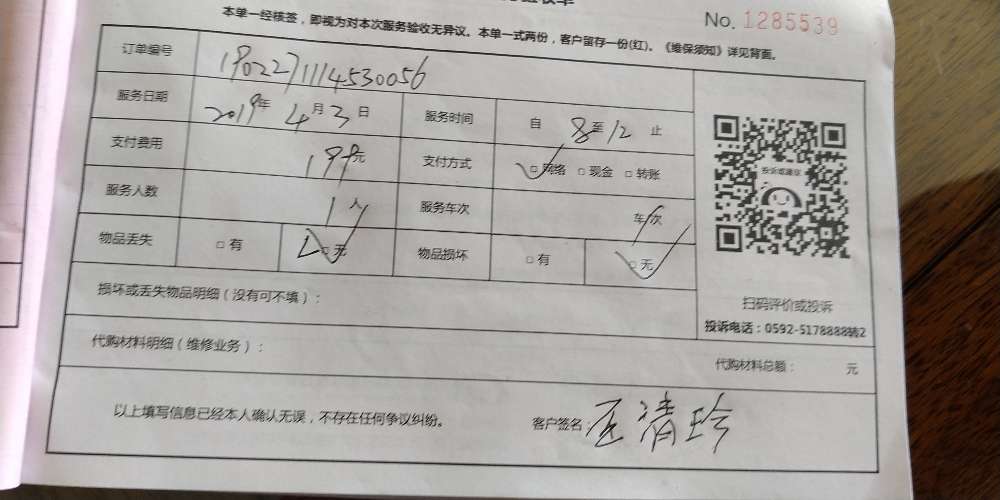 No. 1285539
本单一经核签，即视为对本次服务验收无异议。本单一式两份，客户留存一份(红)。《维保须知》详见背面。
订单编号 1902271114530056
服务日期 2019年 4月3日 服务时间 自 8至12 止
支付费用 199元 支付方式 □网络 □现金 □转账
服务人数 1人 服务车次 车/次
物品丢失 □有 □无 物品损坏 □有 □无
投诉或建议
扫码评价或投诉
投诉电话：0592-5178888转2
损坏或丢失物品明细（没有可不填）：
代购材料明细（维修业务）： 代购材料总额： 元
以上填写信息已经本人确认无误，不存在任何争议纠纷。 客户签名： 清珍